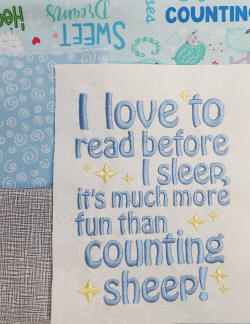 COUNTING
SWEET
Dreams
I love to
read before
I sleep,
it's much more
fun than
counting
sheep!